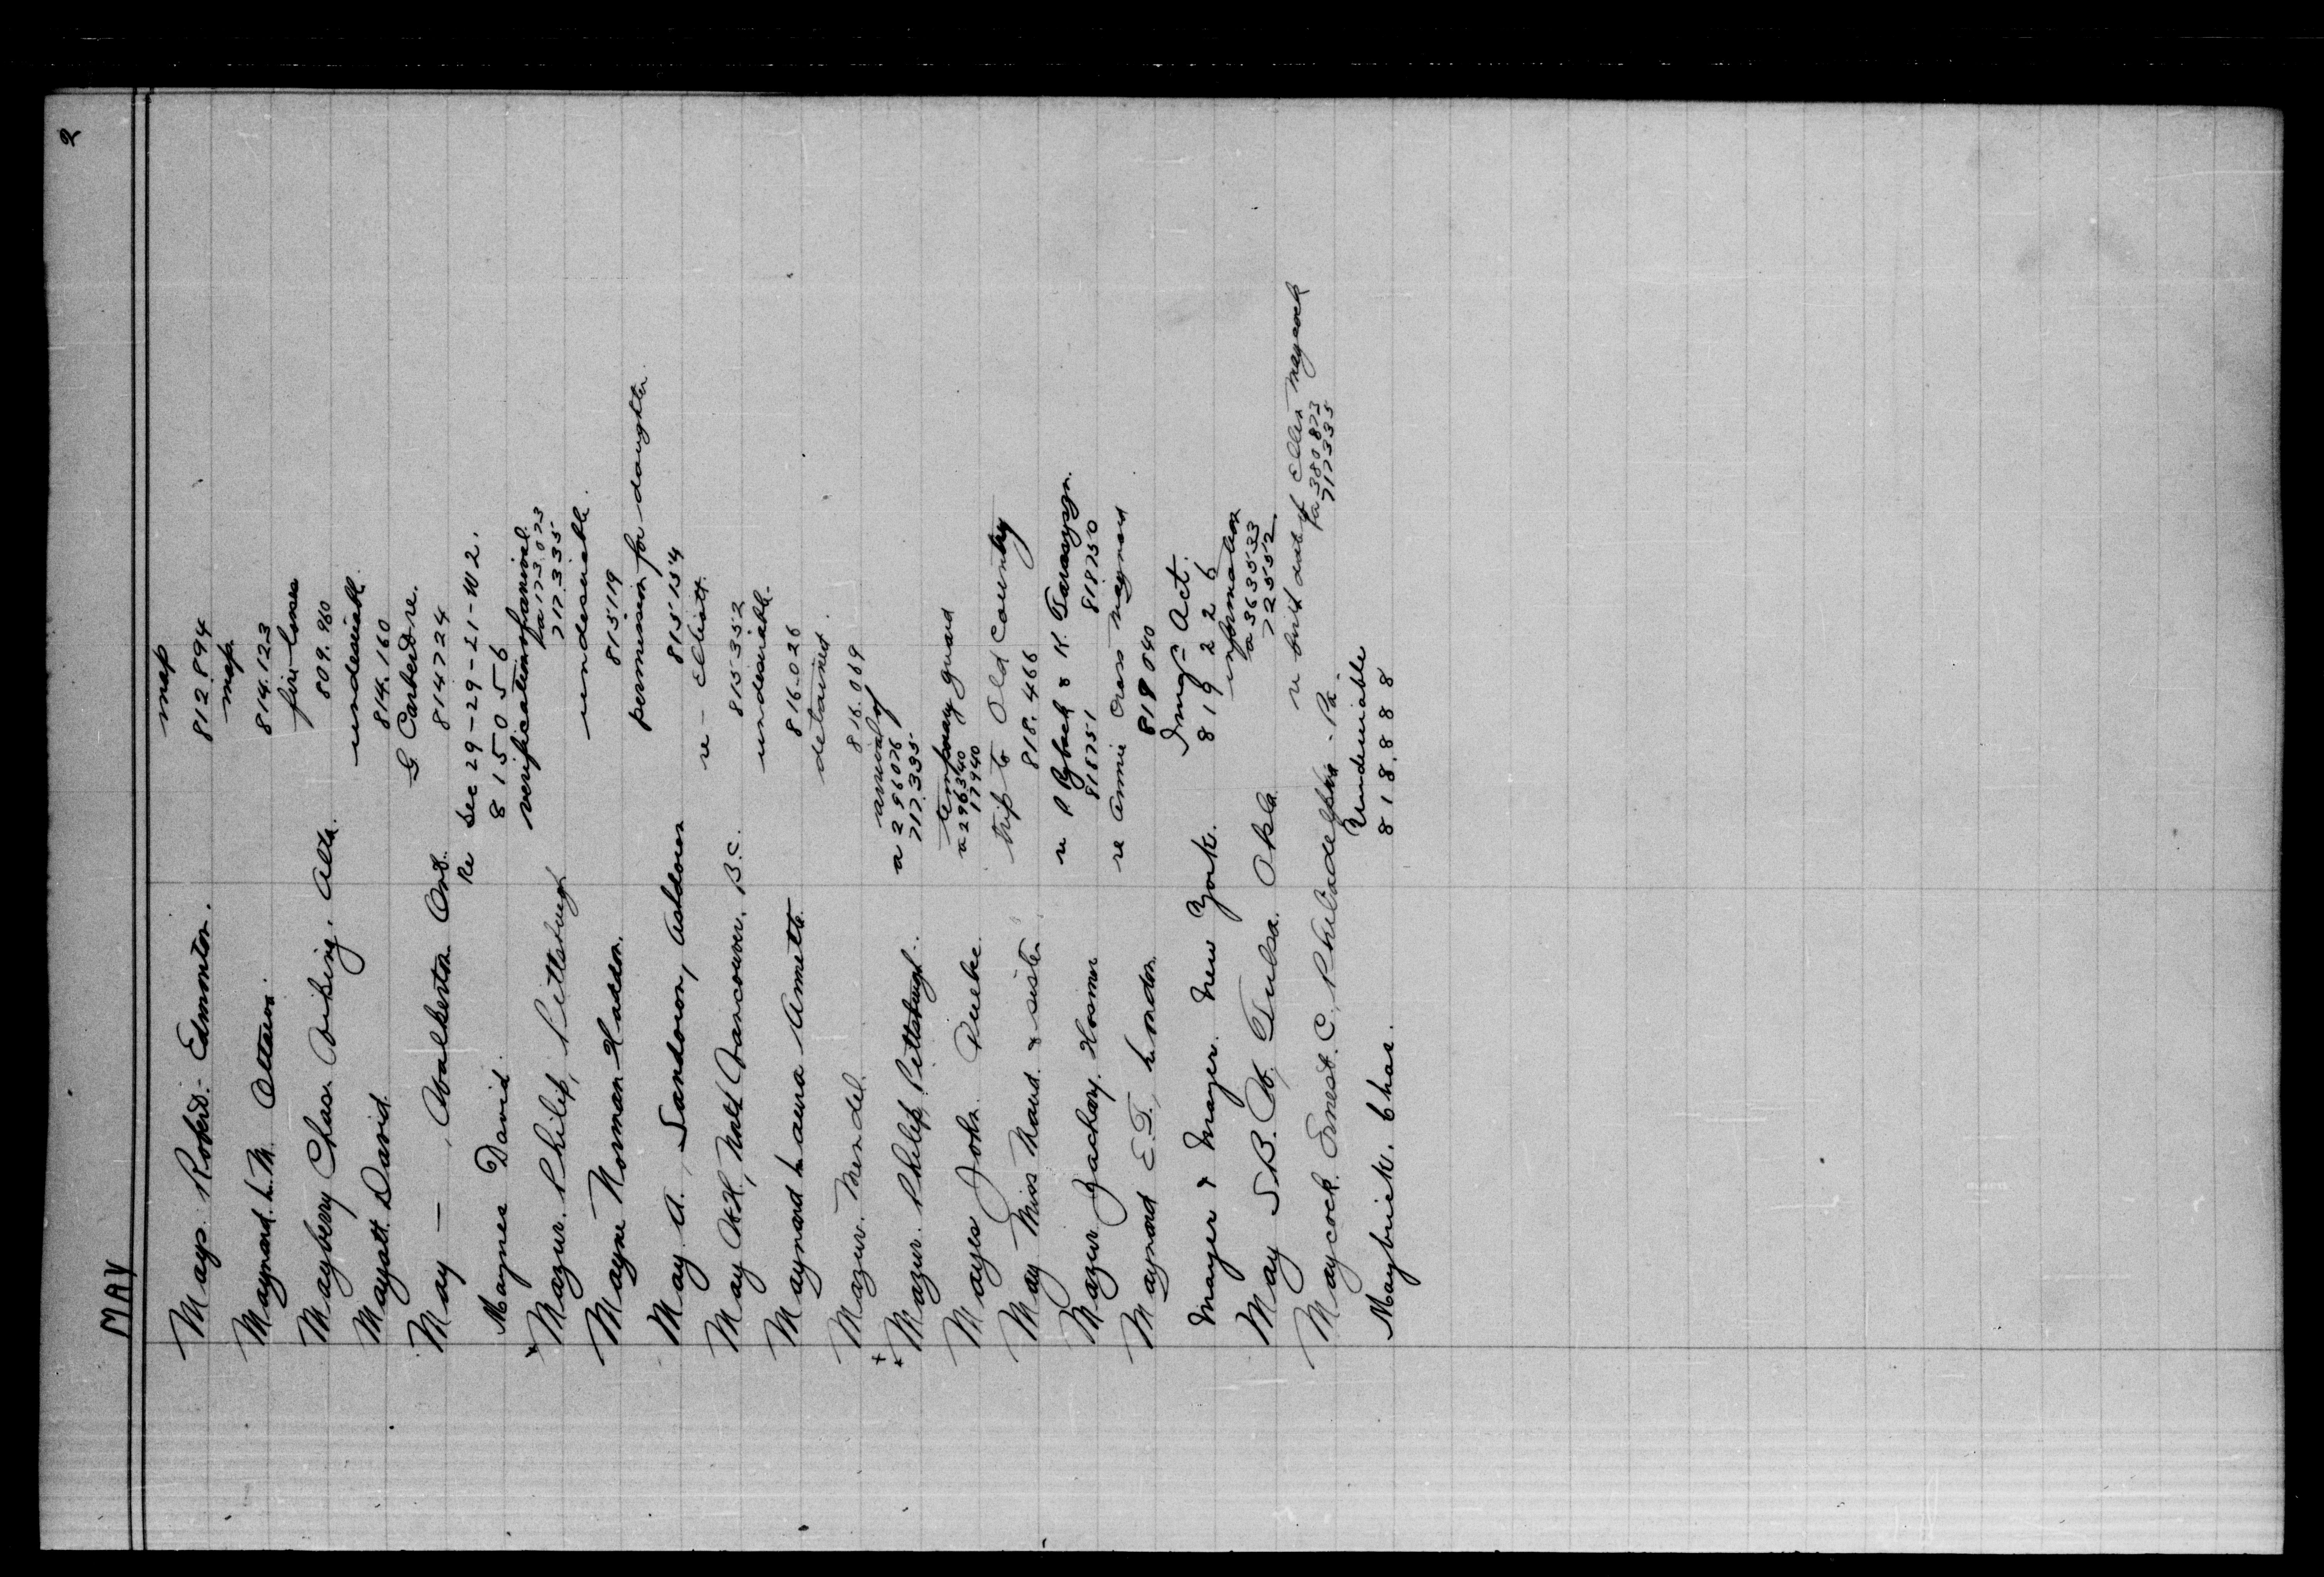 2
MAY
Mays Robert - Edmonton. map
812.894
Maynard L. M. Ottawa. map
814.123
Mayberry Chas. Alta. fire losses
809.980
Mayott David undesirable.
814.160
May — , Walkerton Ont. G Carberd re.
814724
Re Sec 29-29-21-W2.
Maynes David 815056
+ Mazur. Philip, Pittsburgh verification of arrival
fa 173.023
717.335
Mayne Norman Haddon. undesirable.
815119
May A., Sandown, Ashdown permission for daughter
815154
May A.H., North Vancouver, B.C. re - Elliott.
815352
Maynard Laura Annetta undesirable.
816.026
Mazur. Mendel. detained.
816.069
++ Mazur. Philip, Pittsburgh. arrival of
a 296076
717.335
Mayes John. Quebec temporary guard
a 296340
17940
May Miss Maud & sister trip to Old Country
818.466
Mazur Zachary. Hosmer re P Ryback & K. Tarasuzyn.
818751 818750
Maynard E.T., London re Annie Cross Maynard
819040
Mayer & Mayer. New York. Img. Act.
819226
May S.B. Tulsa. Okla. information
a 363533
72552
Maycock Ernest. C, Philadelphia - Pa. re birth date of Ellen Maycock
fa 380873
717335
Maybrick. Chas. Undesirable
818.888